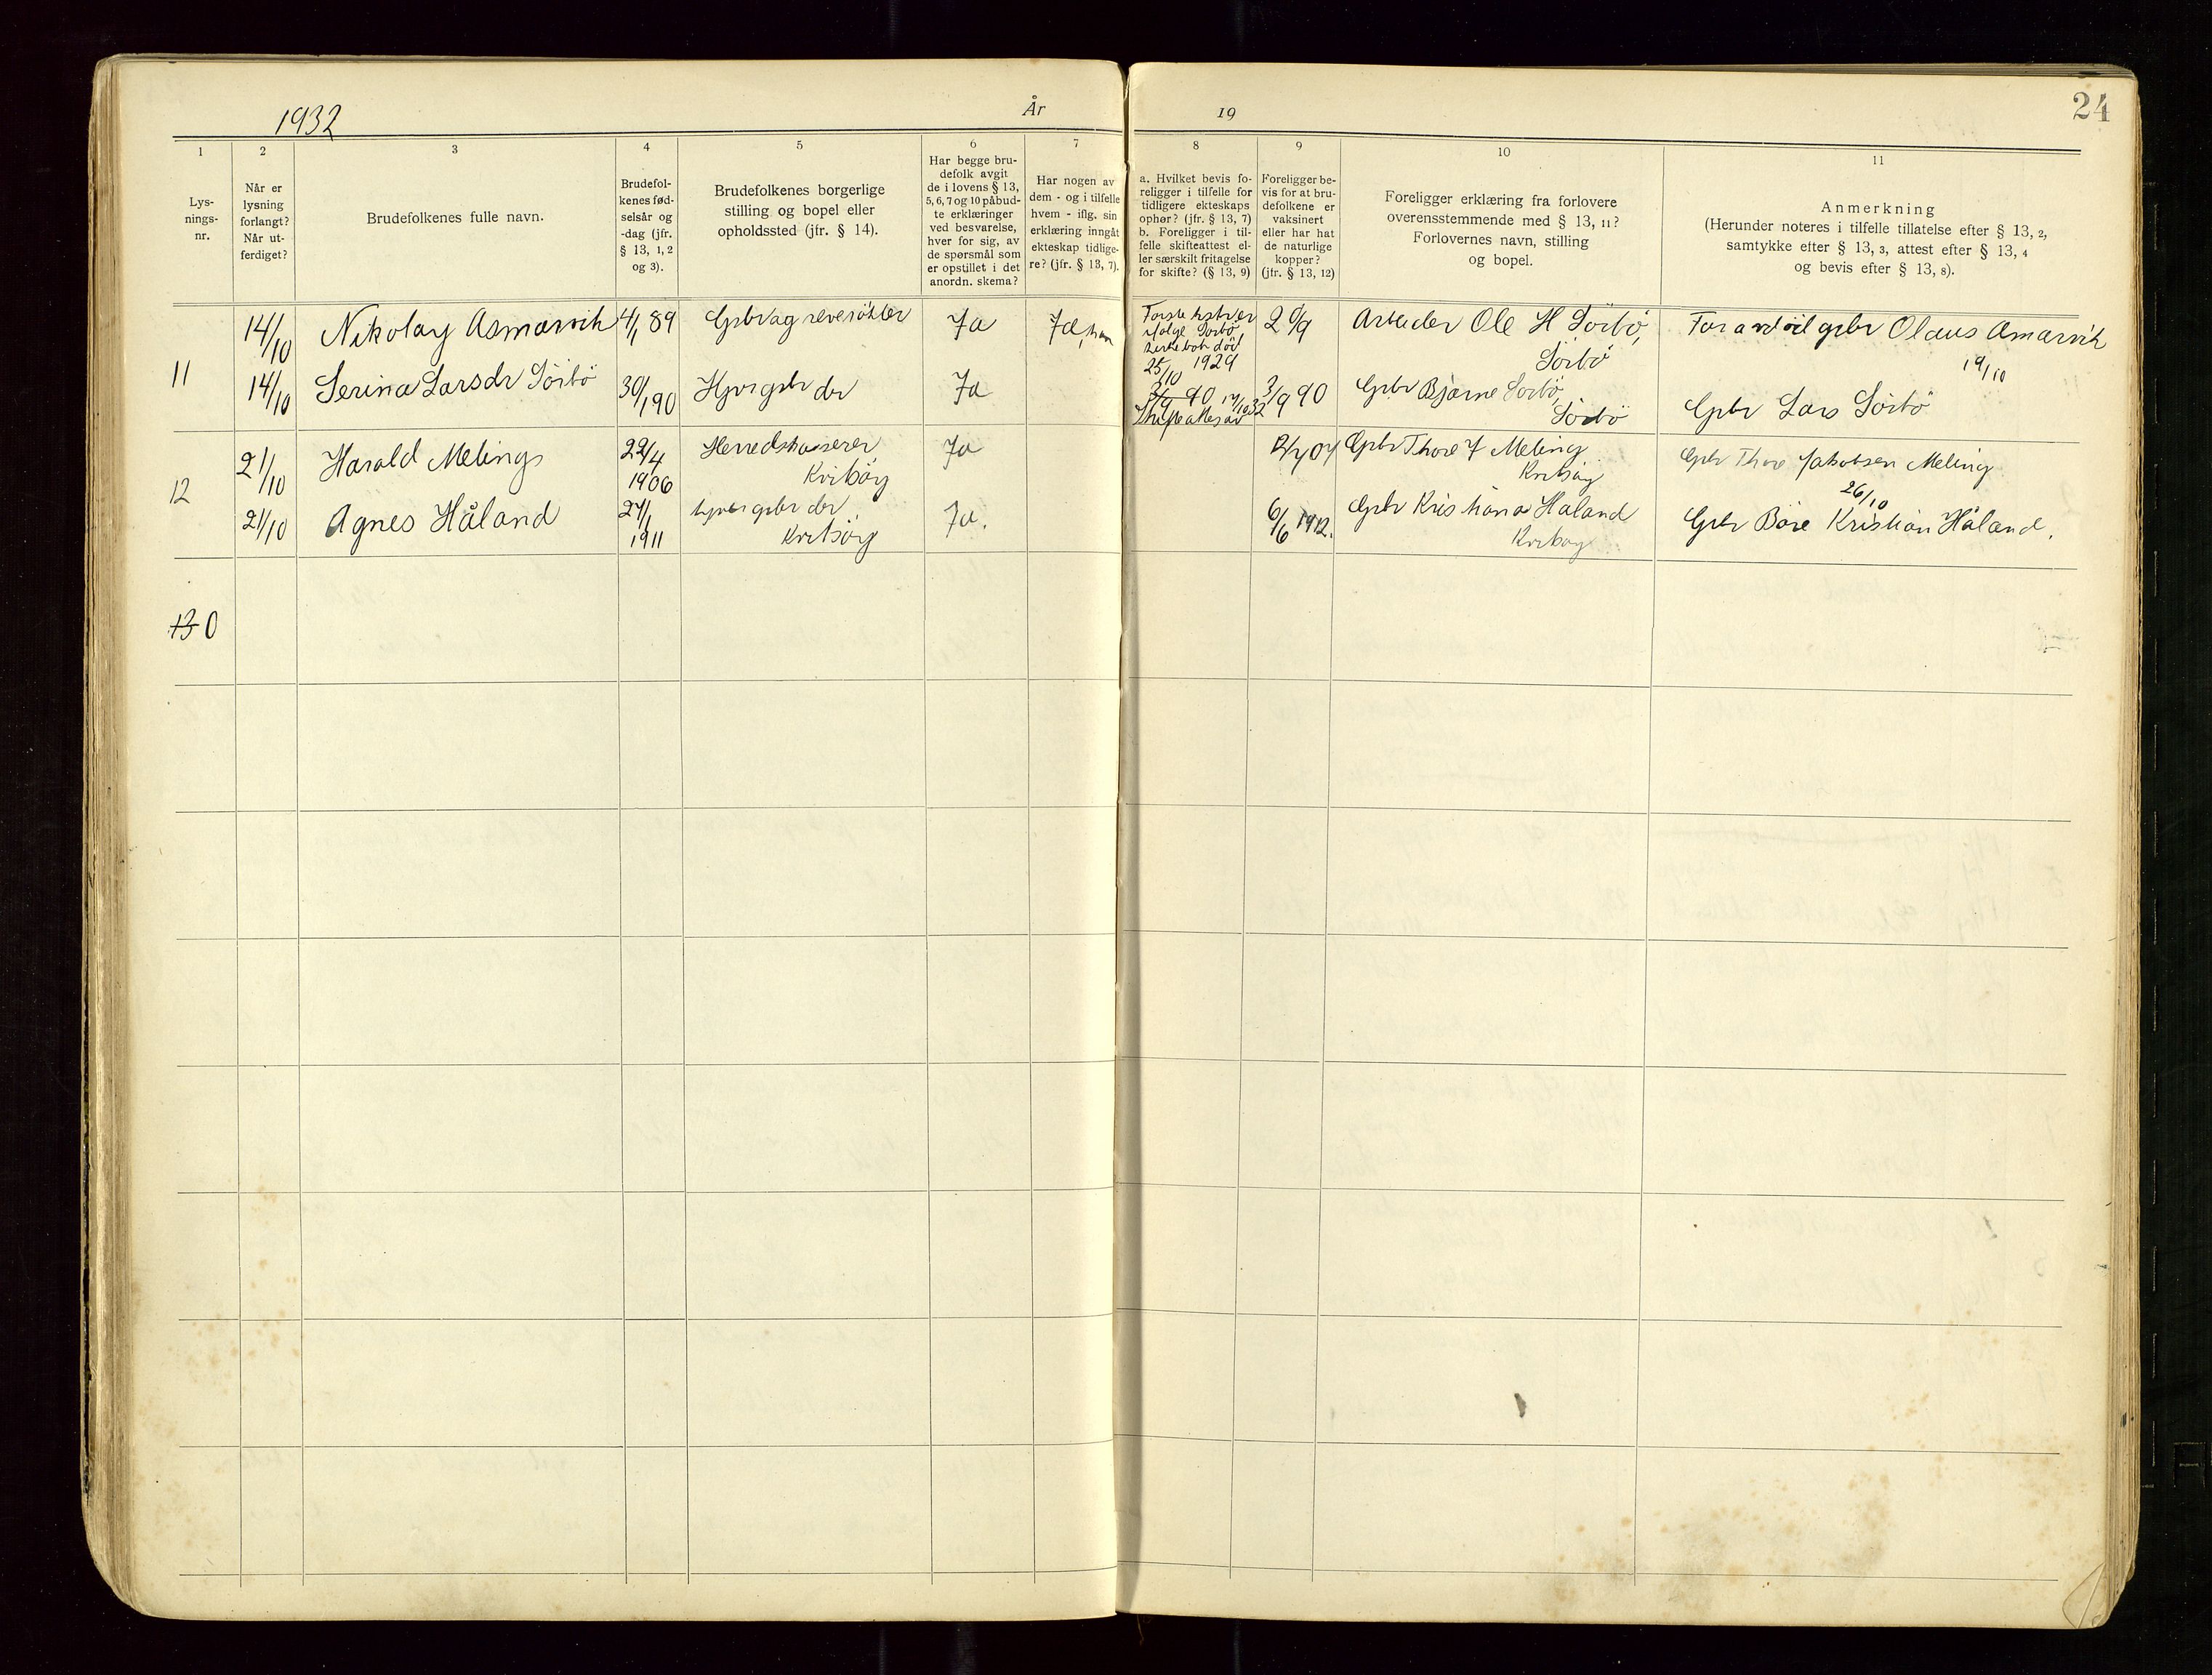 1932
År
19
24
1
2
3
4
5
6
7
8
9
10
11
Lys-
nings-
nr.
Når er
lysning
forlangt?
Når ut-
ferdiget?
Brudefolkenes fulle navn.
Brudefol-
kenes fød-
selsår og
-dag (jfr.
§ 13, 1, 2
og 3).
Brudefolkenes borgerlige
stilling og bopel eller
opholdssted (jfr. § 14).
Har begge bru-
defolk avgit
de i lovens § 13,
5, 6, 7 og 10 påbud-
te erklæringer
ved besvarelse,
hver for sig, av
de spørsmål som
er opstillet i det
anordn. skema?
Har nogen av
dem - og i tilfelle
hvem - iflg. sin
erklæring inngått
ekteskap tidlige-
re? (jfr. § 13, 7).
a. Hvilket bevis fo-
religger i tilfelle for
tidligere ekteskaps
ophør? (jfr. § 13, 7)
b. Foreligger i til-
felle skifteattest el-
ler særskilt fritagelse
for skifte? (§ 13, 9)
Foreligger be-
vis for at bru-
defolkene er
vaksinert
eller har hat
de naturlige
kopper?
(jfr. § 13, 12)
Foreligger erklæring fra forlovere
overensstemmende med § 13, 11?
Forlovernes navn, stilling
og bopel.
Anmerkning
(Herunder noteres i tilfelle tillatelse efter § 13, 2,
samtykke efter § 13, 3, attest efter § 13, 4
og bevis efter § 13, 8).
11
14/10
Nikolay Asmarvik
4/1 89
Gbr og reverökter
Ja
Ja, han
Förste hstr er
ifölge Sörbö
kirkebok död
25/10 1929
20/9
Arbeider Ole H Sörbö,
Sörbö
For avdöd gbr Olaus Amarvik
19/10
14/10
Serina Larsdr Sörbö
30/1 90
Hjv gbr dr
Ja
Skifteattest av
3/9 90
Gbr Bjarne Sörbö,
Sörbö
Gbr Lars Sörbö
12
21/10
Harald Meling
22/4
1906
Herredskasserer
Kvitsöy
Ja
Gbr Thore J Meling
Kvitsöy
Gbr Thore Jakobsen Meling
26/10
21/10
Agnes Håland
27/1
1911
hjv gbr dr
Kvitsöy
Ja.
6/6 1912.
Gbr Kristian Håland
Kvitsöy
Gbr Bore Kristian Håland.
13 0